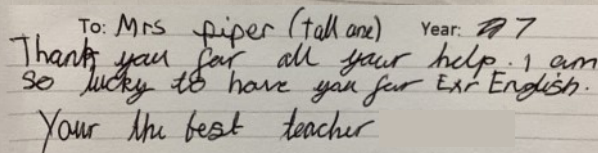 To: Mrs piper (tall one) Year: 7
Thank you for all your help. I am
so lucky to have you for Exr English.
Your the best teacher